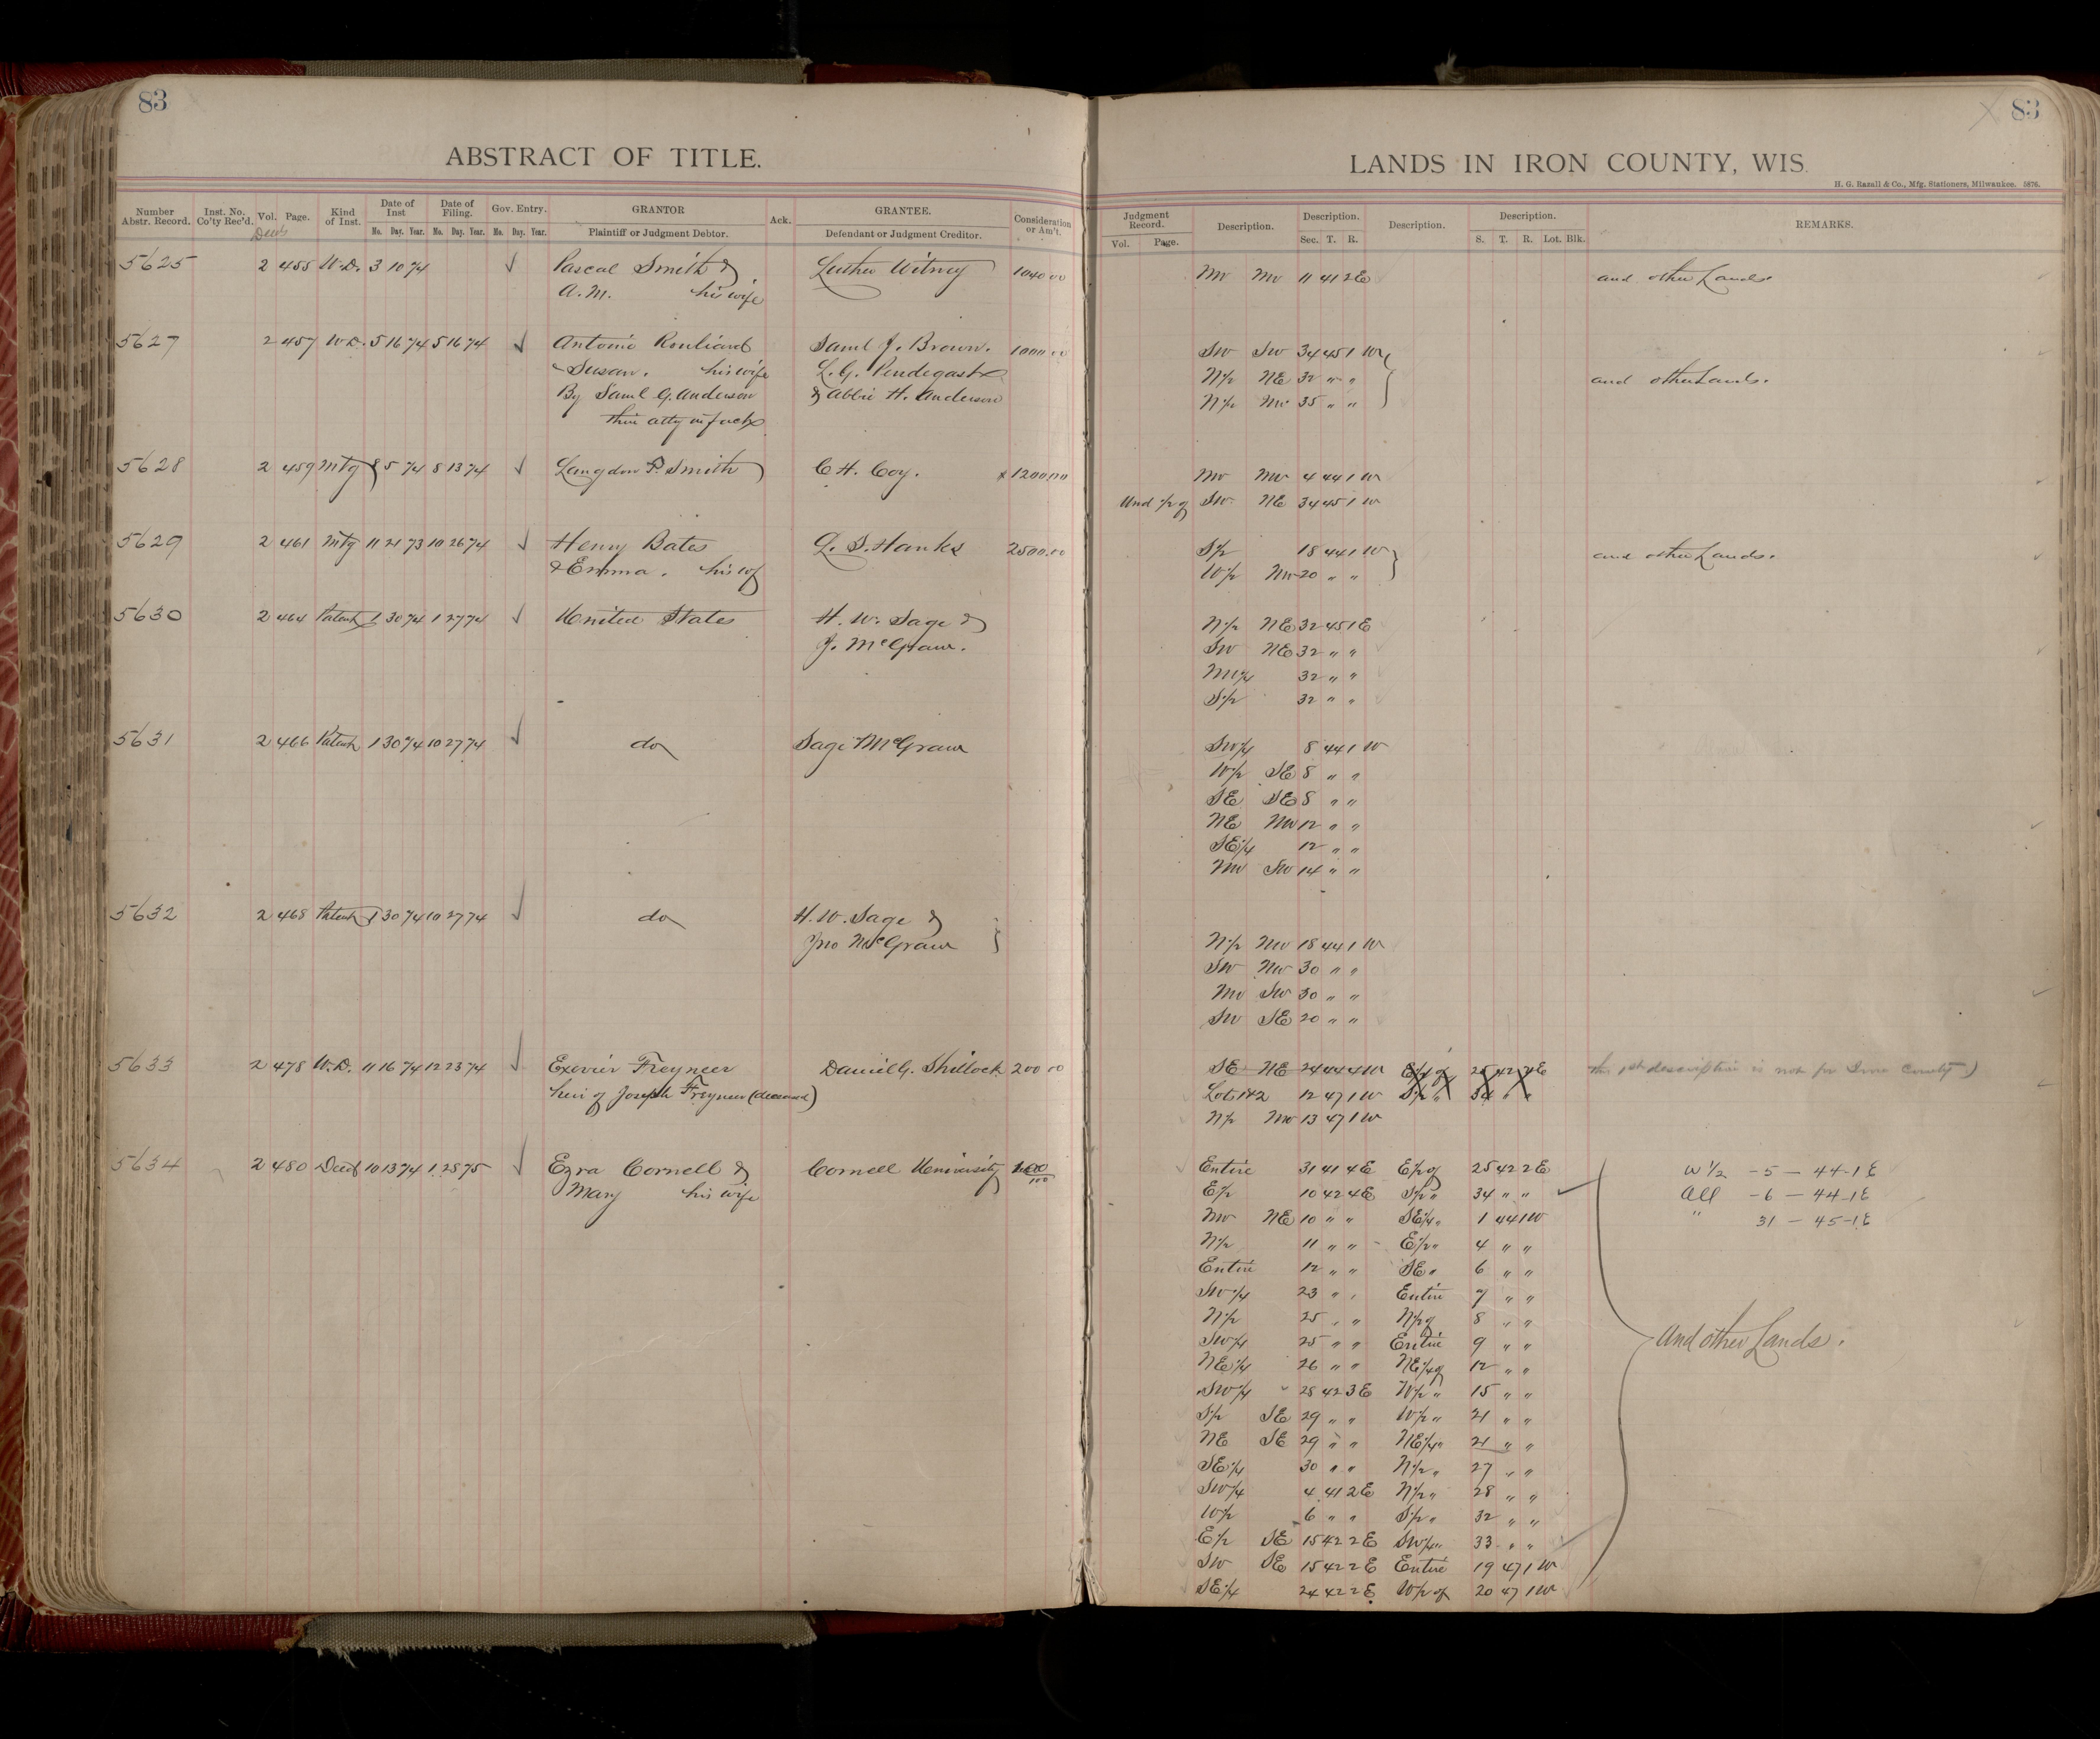 83
ABSTRACT OF TITLE.
Number Abstr. Record. Inst. No. Co'ty Rec'd. Vol. Page. Kind of Inst. Date of Inst Date of Filing. Gov. Entry. GRANTOR Ack. GRANTEE. Consideration or Am't.
Mo. Day. Year. Mo. Day. Year. Mo. Day. Year. Plaintiff or Judgment Debtor. Defendant or Judgment Creditor.
Deeds
5625 2 455 W.D. 3 10 74 Pascal Smith & Luther Witney 1040.00
A. M. his wife
5627 2 457 W.D. 5 16 74 5 16 74 Antoine Saml J. Brown. 1000.00
Susan. his wife L. G. Pendegast
By Saml G. Anderson & Abbie H. Anderson
their atty in fact
5628 2 459 Mtg 8 5 74 8 13 74 Langdon P. Smith C. H. Coy. 1200.00
5629 2 461 Mtg 11 21 73 10 26 74 Henry Bates L. S. Hanks 2500.00
& Emma. his wf
5630 2 464 Patent 1 30 74 1 27 74 United States H. W. Sage &
J. McGraw.
5631 2 466 Patent 1 30 74 10 27 74 do Sage McGraw
5632 2 468 Patent 1 30 74 10 27 74 do H. W. Sage &
Jno McGraw
5633 2 478 W.D. 11 16 74 12 23 74 Exevier Freyneer Daniel G. Shillock 200 00
heir of Joseph Freyneer (deceased)
5634 2 480 Deed 10 13 74 1 28 75 Ezra Cornell & Cornell University
Mary his wife
83
LANDS IN IRON COUNTY, WIS.
H. G. Razall & Co., Mfg. Stationers, Milwaukee. 5876.
Judgment Record. Description. Description. Description. Description. REMARKS.
Vol. Page. Sec. T. R. S. T. R. Lot. Blk.
NW NW 11 41 2E and other Lands.
SW SW 34 45 1 W
N1/2 NE 32 " " and other Lands.
N1/2 NW 35 " "
NW NW 4 44 1 W
Und 1/2 of SW NE 34 45 1 W
S1/2 18 44 1 W and other Lands.
W1/2 NW 20 " "
N1/2 NE 32 45 1 E
SW NE 32 " "
NW1/4 32 " "
S1/2 32 " "
SW1/4 8 44 1 W
W1/2 SE 8 " "
SE SE 8 " "
NE NW 12 " "
SE1/4 12 " "
NW SW 14 " "
N1/2 NW 18 44 1 W
SW NW 30 " "
NW SW 30 " "
SW SE 20 " "
SE NE 24 44 4 W E1/2 of 25 42 2E the 1st description is not for Iron County)
Lots 1&2 12 47 1 W S1/2 " 34 " "
N1/2 NW 13 47 1 W
Entire 31 41 4E E1/2 of 25 42 2E W 1/2 - 5 - 44-1E
E1/2 10 42 4E S1/2 " 34 " " All - 6 - 44-1E
NW NE 10 " " SE1/4 " 1 44 1W " 31 - 45-1E
N1/2 11 " " E1/2 " 4 " "
Entire 12 " " SE " 6 " "
SW1/4 23 " " Entire 7 " "
N1/2 25 " " N1/2 of 8 " "
SW1/4 25 " " Entire 9 " " And other Lands.
NE1/4 26 " " NE1/4 of 12 " "
SW1/4 28 42 3E W1/2 " 15 " "
S1/2 SE 29 " " W1/2 " 21 " "
NE SE 29 " " NE1/4 " 21 " "
SE1/4 30 " " N1/2 " 27 " "
SW1/4 4 41 2E N1/2 " 28 " "
W1/2 6 " " S1/2 " 32 " "
E1/2 SE 15 42 2E SW1/4 " 33 " "
SW SE 15 42 2E Entire 19 47 1 W
SE1/4 24 42 2E W1/2 of 20 47 1W